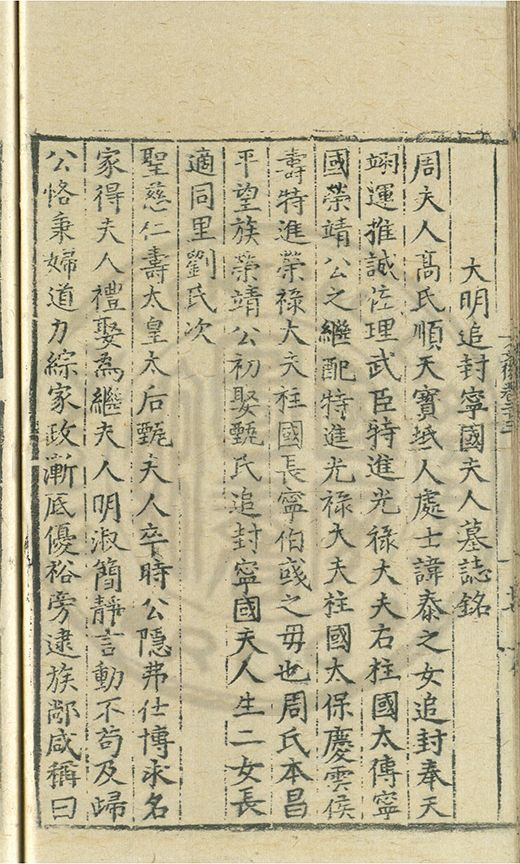 大明追封寧國夫人墓誌銘
周夫人高氏順天寶坻人處士諱泰之女追封奉天
翊運推誠佐理武臣特進光祿大夫右柱國太傅寧
國榮靖公之繼配特進光祿大夫柱國太保慶雲侯
壽特進榮祿大夫柱國長寧伯彧之毋也周氏本昌
平望族榮靖公初娶甄氏追封寧國夫人生二女長
適同里劉氏次
聖慈仁壽太皇太后甄夫人卒時公隱弗仕博求名
家得夫人禮娶為繼夫人明淑簡靜言動不苟及歸
公恪秉婦道力綜家政漸底優裕旁逮族鄰咸稱曰